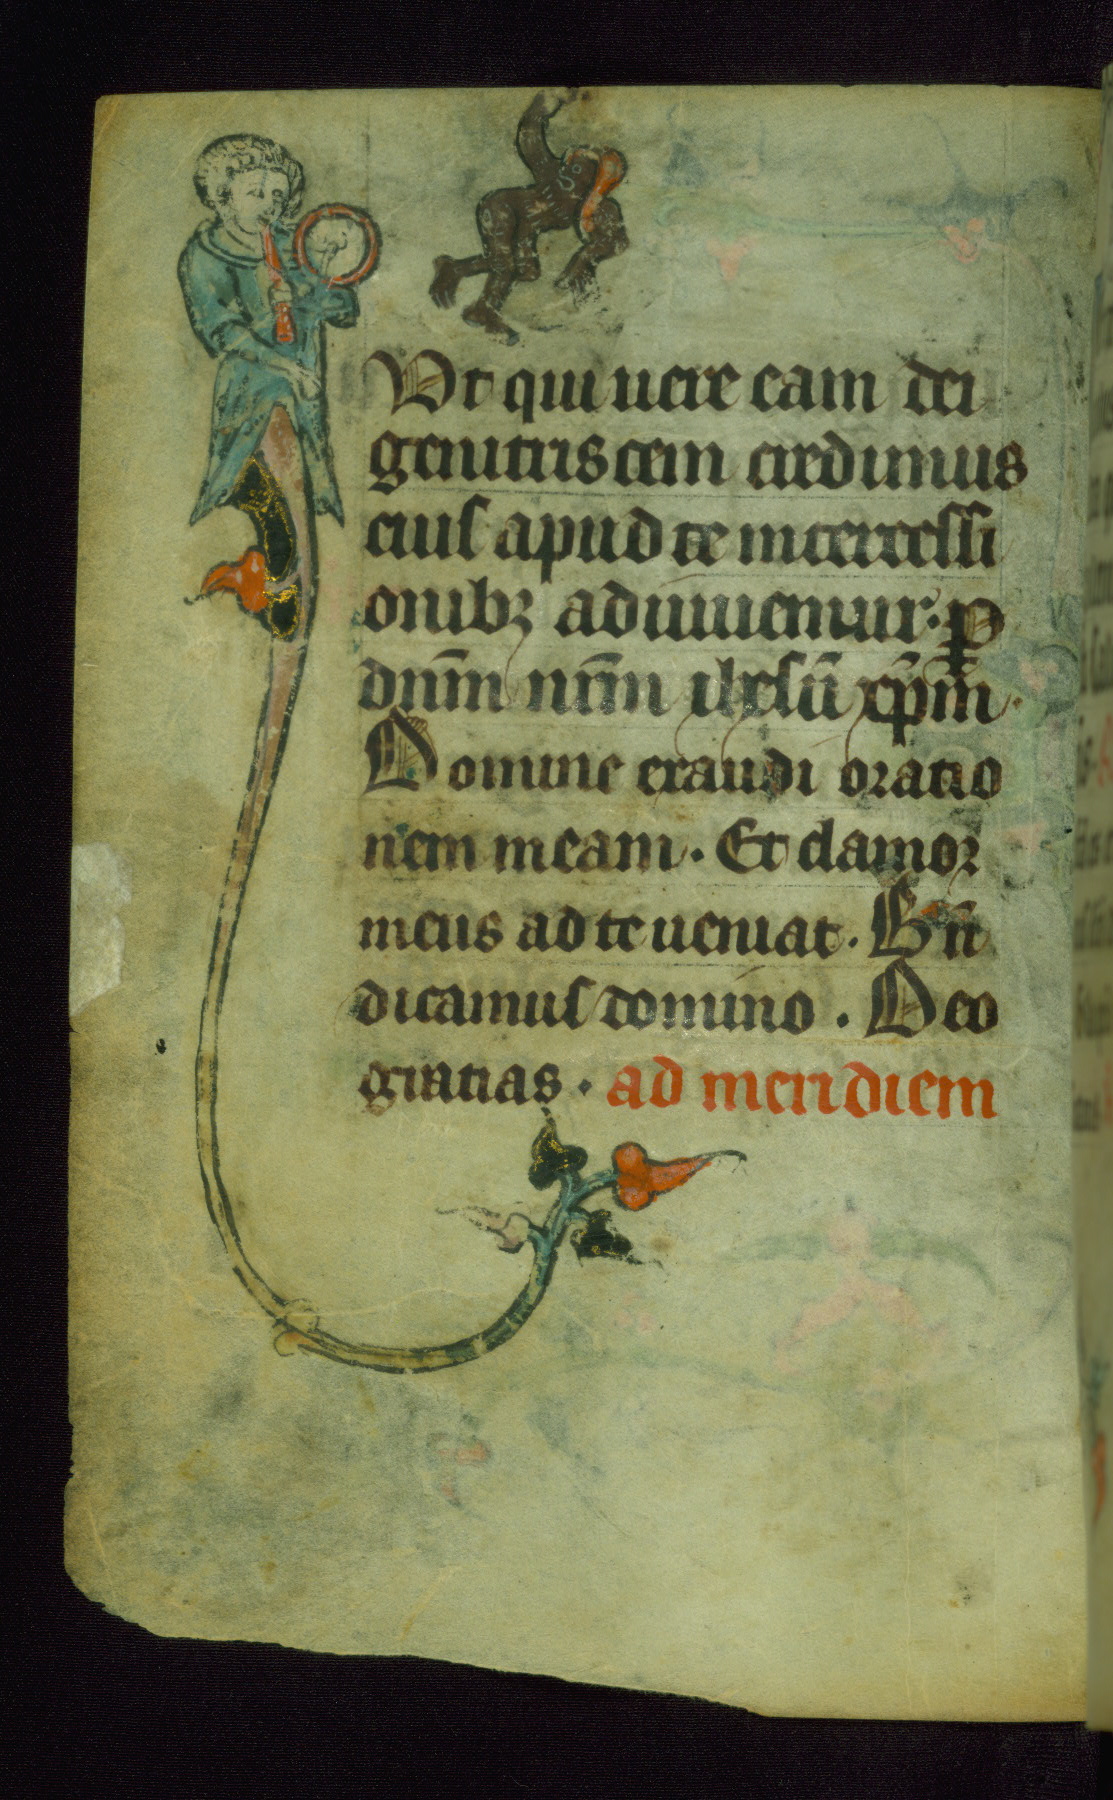 Vt qui uere eam dei
genitriscem credimus
eiuſ apud te interceſſi
onibꝫ adiuuemur · ꝑ
dn̄m nr̄m ihesū xp̄m ·
Domine exaudi oratio
nem meam · Et clamor
meus ad te ueniat · Bn̄
dicamuſ domino · Deo
gratias · ad meridiem